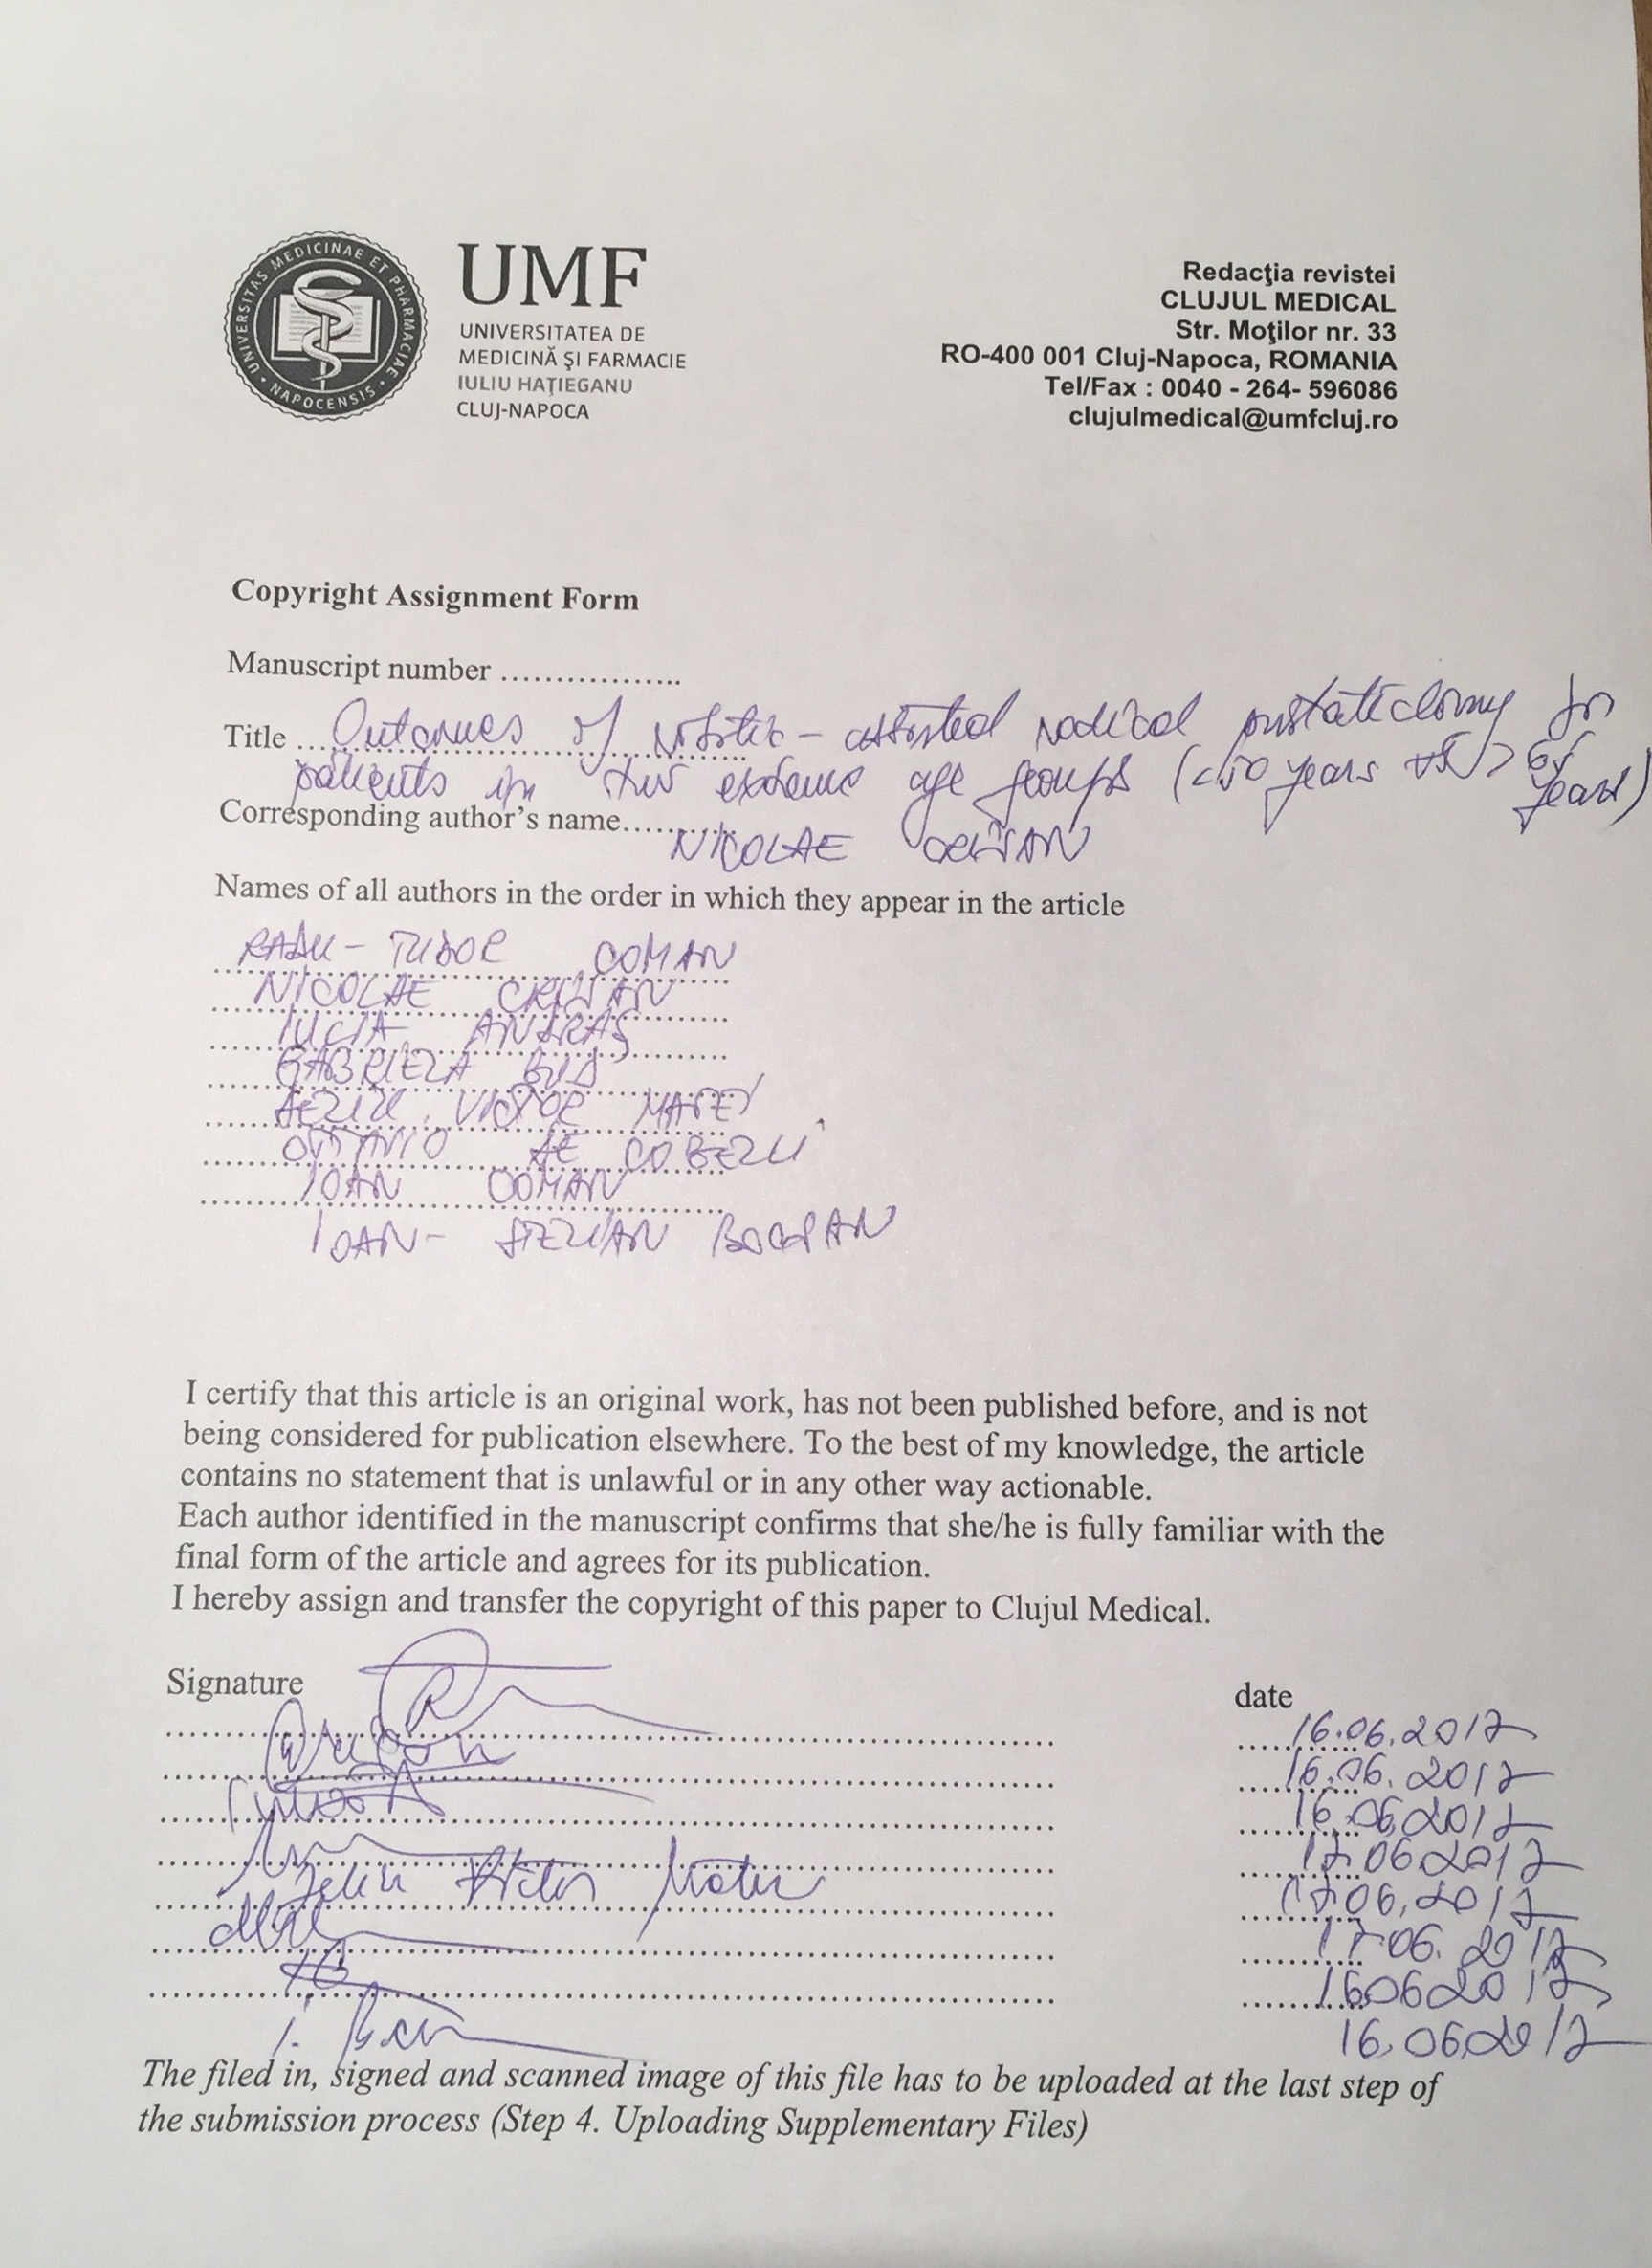 UNIVERSITAS MEDICINAE ET PHARMACIAE NAPOCENSIS
UMF
UNIVERSITATEA DE
MEDICINĂ ŞI FARMACIE
IULIU HAŢIEGANU
CLUJ-NAPOCA
Redacţia revistei
CLUJUL MEDICAL
Str. Moţilor nr. 33
RO-400 001 Cluj-Napoca, ROMANIA
Tel/Fax : 0040 - 264- 596086
clujulmedical@umfcluj.ro
Copyright Assignment Form
Manuscript number ..................
Title ... Outcomes of robotic-assisted radical prostatectomy for
patients in two extreme age groups (<50 years vs > 65 years)
Corresponding author's name............
NICOLAE CRISAN
Names of all authors in the order in which they appear in the article
RADU-TUDOR COMAN
NICOLAE CRISAN
IULIA ANDRAS
GABRIELA BUD
VICTOR MATEI
OTTAVIO DE COBELLI
IOAN COMAN
IOAN-STELIAN BOCSAN
I certify that this article is an original work, has not been published before, and is not
being considered for publication elsewhere. To the best of my knowledge, the article
contains no statement that is unlawful or in any other way actionable.
Each author identified in the manuscript confirms that she/he is fully familiar with the
final form of the article and agrees for its publication.
I hereby assign and transfer the copyright of this paper to Clujul Medical.
Signature date
16.06.2017
16.06.2017
16.06.2017
17.06.2017
Victor Matei 17.06.2017
17.06.2017
16.06.2017
16.06.2017
The filed in, signed and scanned image of this file has to be uploaded at the last step of
the submission process (Step 4. Uploading Supplementary Files)